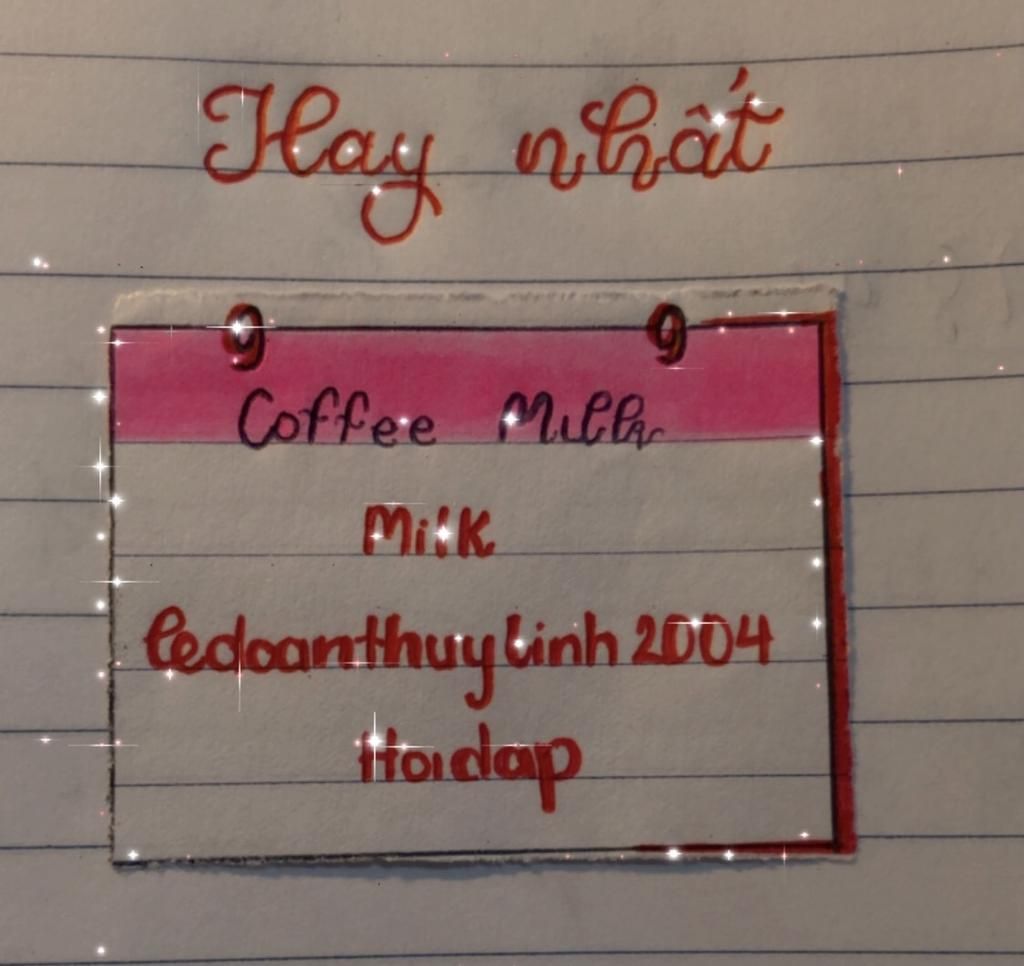 Hay nhất
9 9
Coffee Milk
Milk
ledoanthuylinh 2004
Hoidap